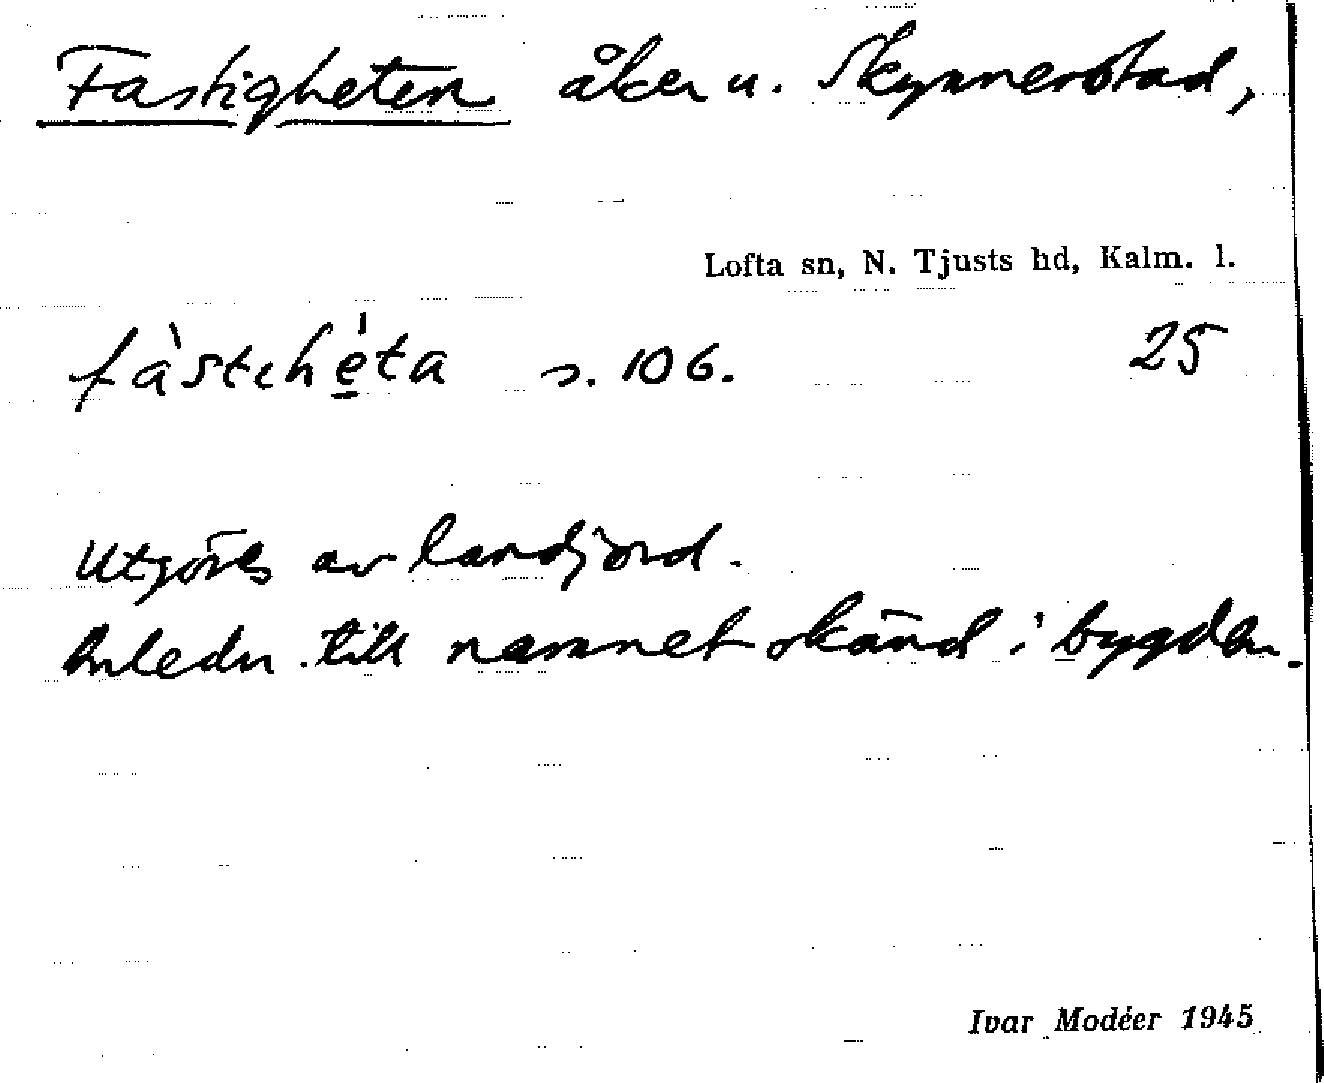 Fastigheten åker u. Skynnerstad,
Lofta sn, N. Tjusts hd, Kalm. l.
fàstɩhé̠ta s. 106. 25
Utgöres av landjord.
Anledn. till namnet okänd i bygden.
Ivar Modéer 1945